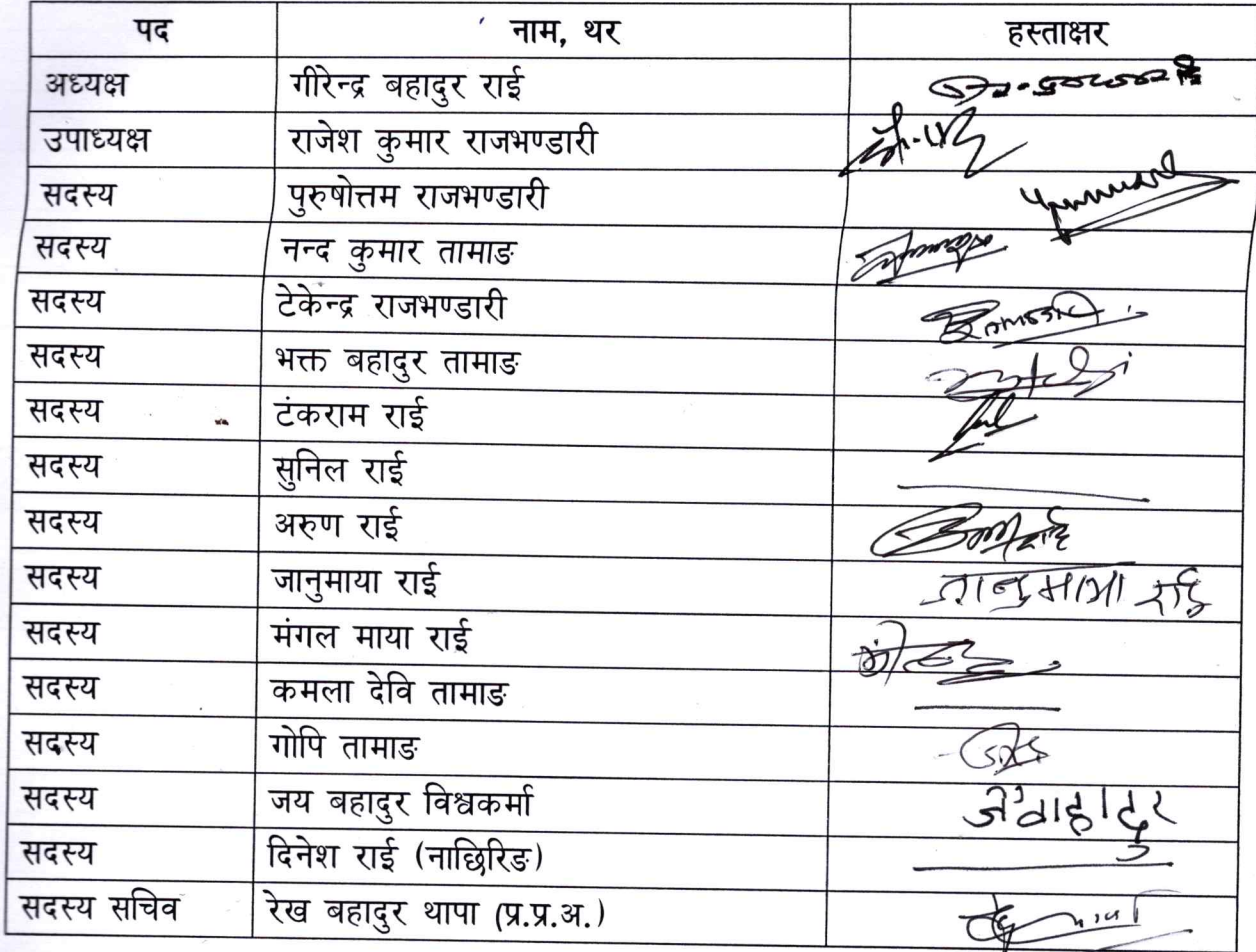 पद नाम, थर हस्ताक्षर
अध्यक्ष गीरेन्द्र बहादुर राई
उपाध्यक्ष राजेश कुमार राजभण्डारी
सदस्य पुरुषोत्तम राजभण्डारी
सदस्य नन्द कुमार तामाङ
सदस्य टेकेन्द्र राजभण्डारी
सदस्य भक्त बहादुर तामाङ
सदस्य टंकराम राई
सदस्य सुनिल राई
सदस्य अरुण राई
सदस्य जानुमाया राई जानुमाया राई
सदस्य मंगल माया राई
सदस्य कमला देवि तामाङ
सदस्य गोपि तामाङ
सदस्य जय बहादुर विश्वकर्मा
सदस्य दिनेश राई (नाछिरिङ)
सदस्य सचिव रेख बहादुर थापा (प्र.प्र.अ.)